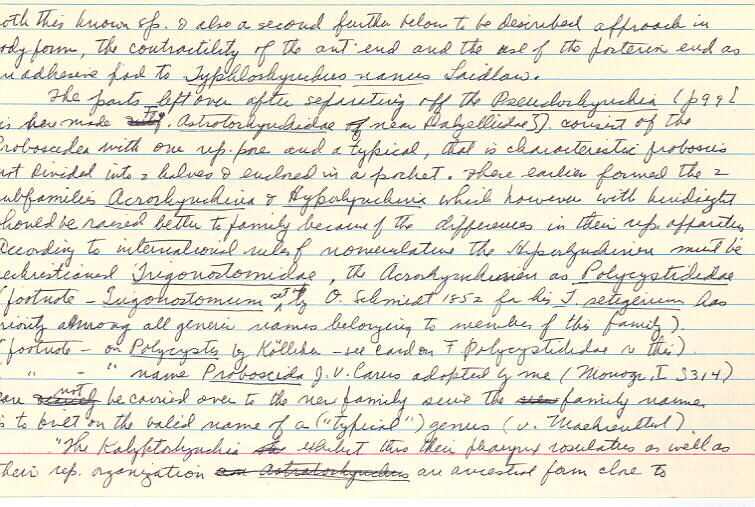 oth this known sp. & also a second further below to be described approach in
ody form, the contractility of the ant. end and the use of the posterior end as
n adhesive pad to Typhlorhynchus nanus Laidlaw.
The parts left over after separating off the Pseudorhynchia (p 99 [
is here made F. Astrotorhynchidae near Dalyelliidae]). consist of the
Proboscidea with one rep. pore and a typical, that is characteristic proboscis
not divided into 2 halves & enclosed in a pocket. I here earlier formed the 2
ubfamilies Acrorhynchina & Hyporhynchina which however with hindsight
hould be raised better to family because of the differences in their rep. apparatus
According to international rules of nomenclature the Hyporhynchinen must be
echristianed Trigonostomidae, the Acrorhynchinen as Polycystididae
(footnote - Trigonostomum set up by O. Schmidt 1852 for his T. setigerum has
riority among all generic names belonging to members of this family).
(footnote - on Polycystis by Kölliker - see card on F. Polycystididae re this)
" - " name Proboscida J.V. Carus adopted by me (Monogr. I S314)
are not be carried over to the new family since the family name
is to built on the valid name of a ("typical") genus (v. Maehrenthal)
"The Kalyptorhynchia exhibit thru their pharynx rosulatus as well as
their rep. organization an ancestral form close to